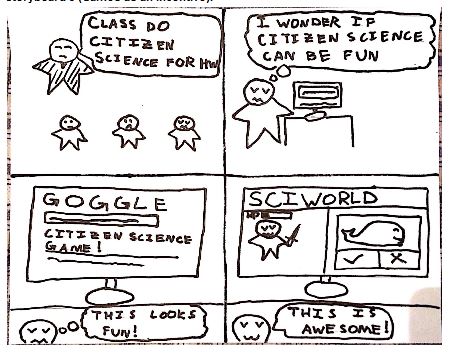 CLASS DO
CITIZEN
SCIENCE FOR HW
I WONDER IF
CITIZEN SCIENCE
CAN BE FUN
GOGGLE
CITIZEN SCIENCE
GAME!
THIS LOOKS
FUN!
SCIWORLD
THIS IS
AWESOME!